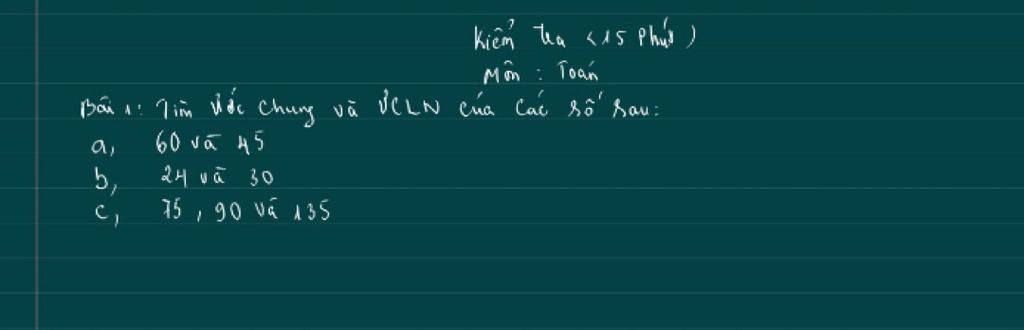 Kiểm tra (15 phút)
Môn : Toán
Bài 1: Tìm ước chung và ƯCLN của các số sau:
a, 60 và 45
b, 24 và 30
c, 75 , 90 và 135